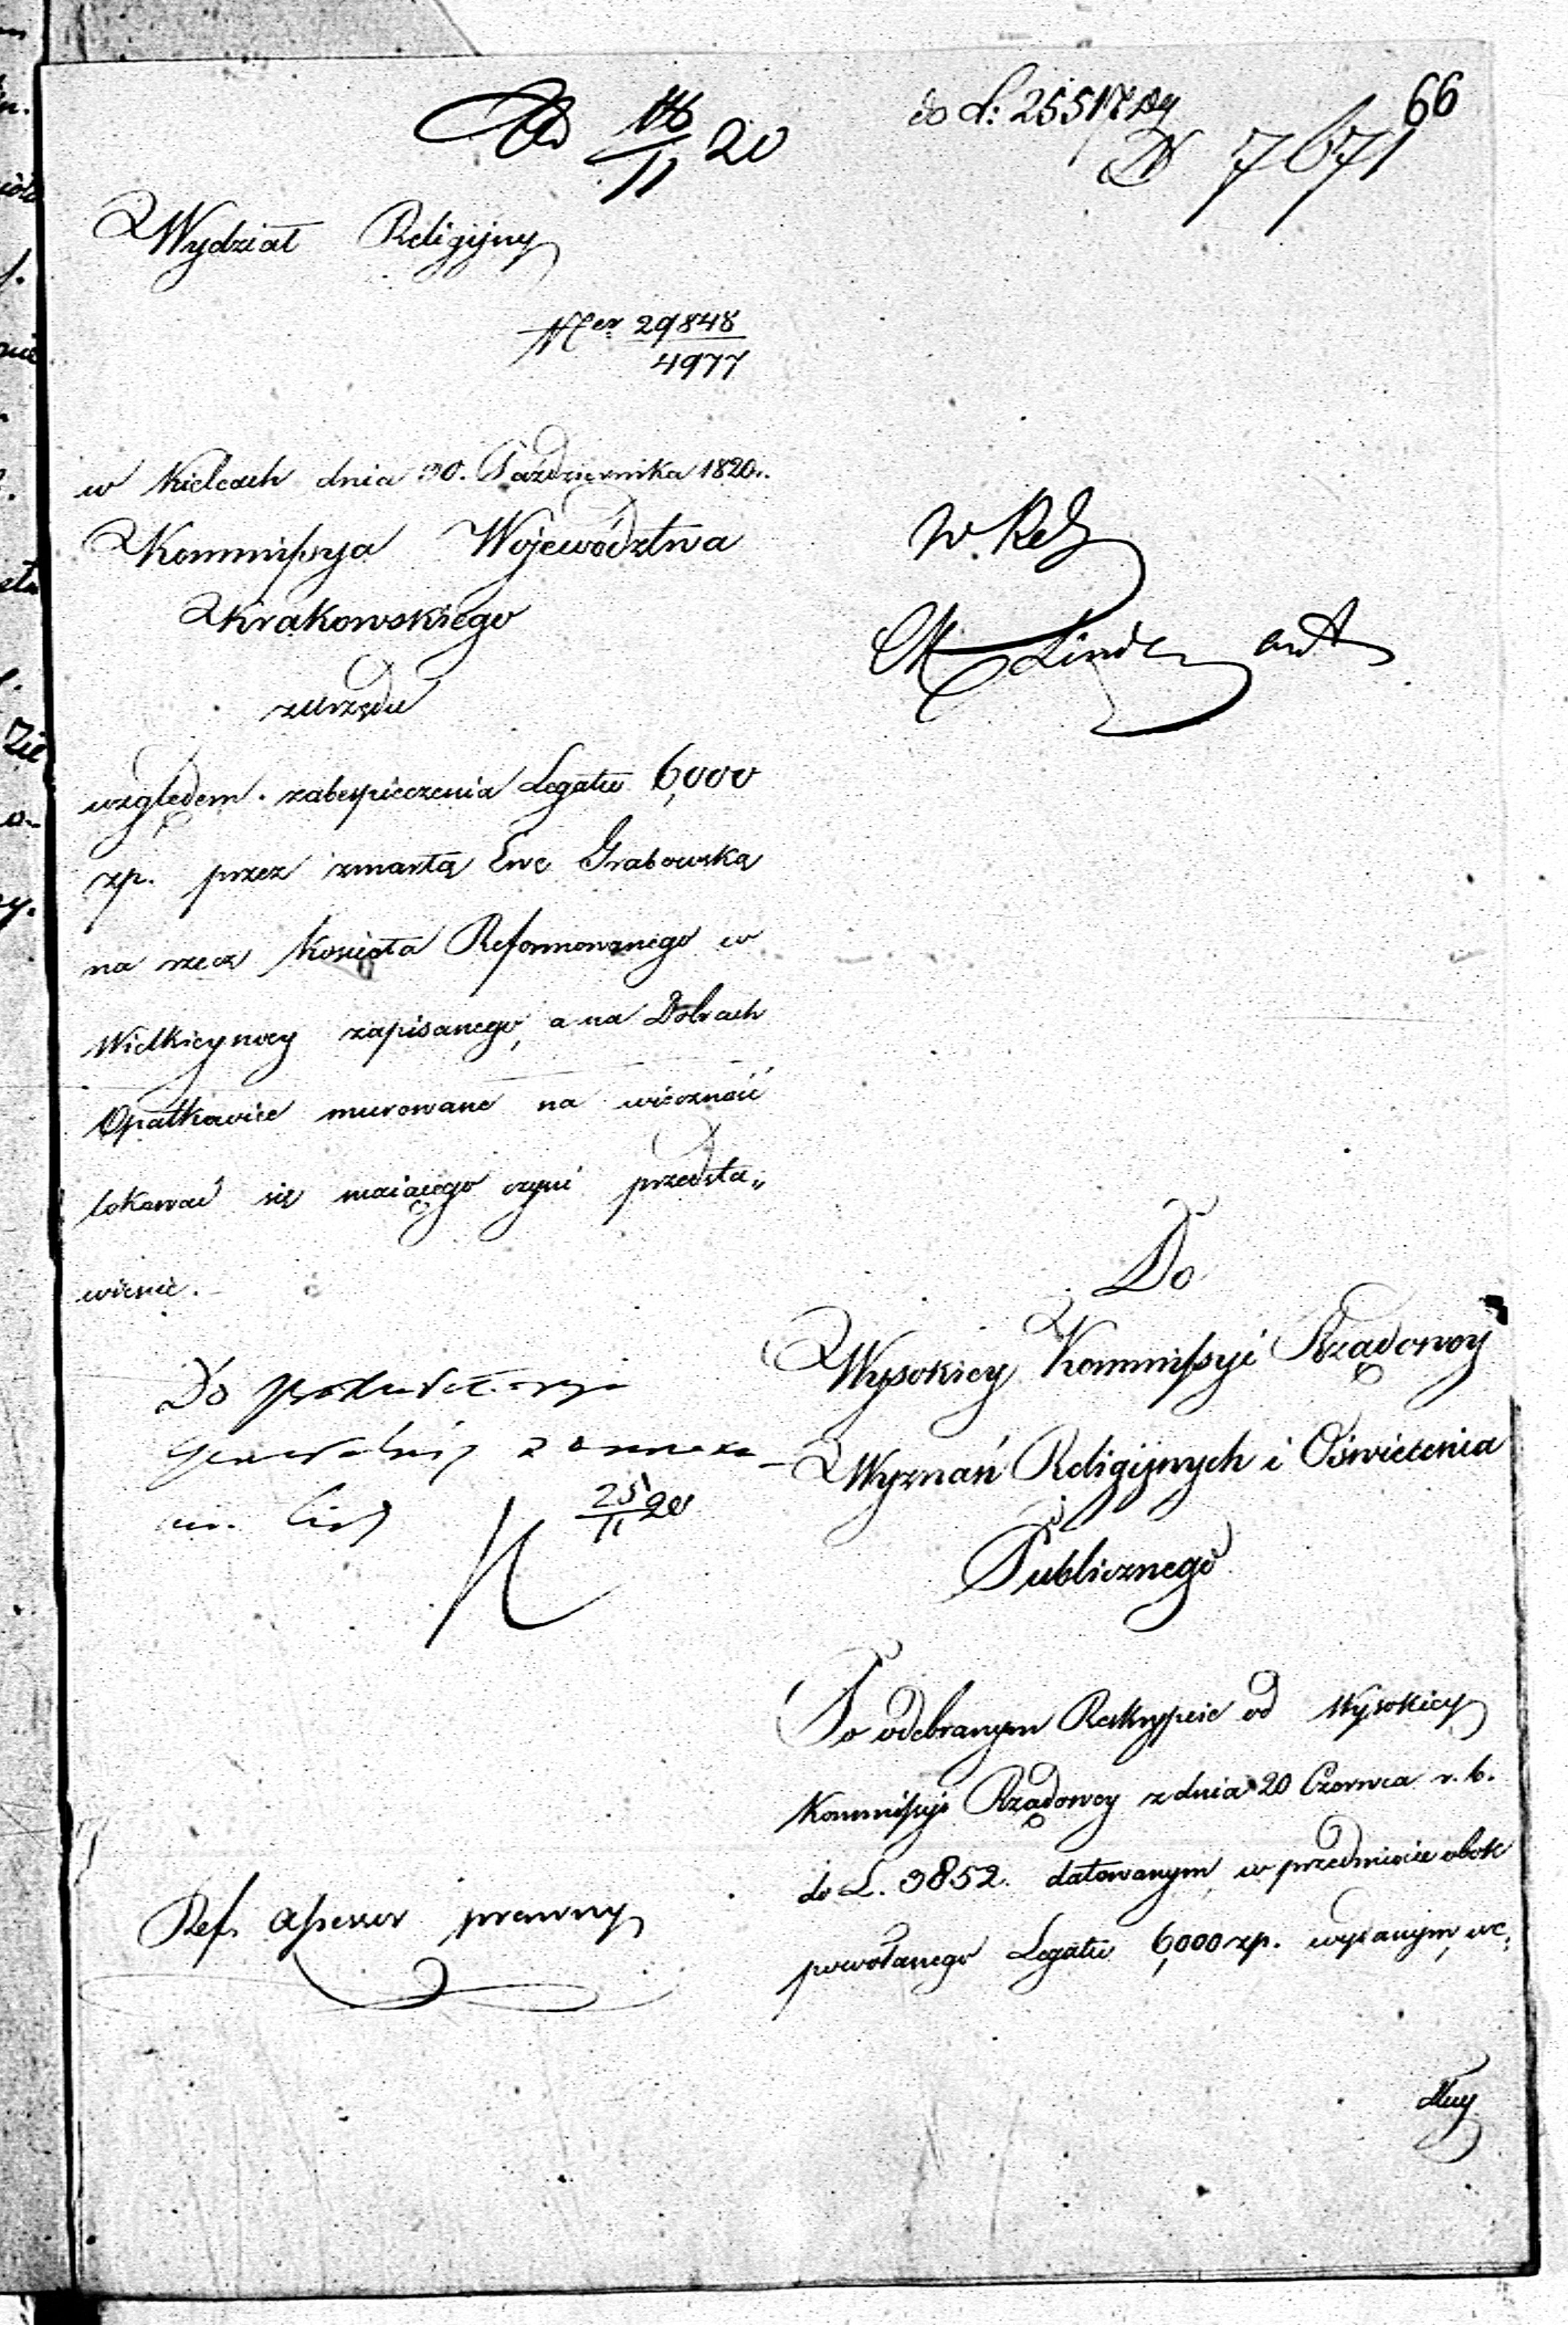 66
do L: 25517
N 7671
16/11 20
Wydział Religijny
Ner 29848
4977
w Kielcach dnia 30. Października 1820.
Kommissya Województwa
Krakowskiego
zUrzędu
względem zabespieczenia Legatu 6,000
zp. przez zmarłą Ewę Grabowską
na rzecz Kościoła Reformowanego w
Wielkieynocy zapisanego, a na Dobrach
Opatkowice murowane na wieczność
lokować się maiącego czyni przedsta„
wienie.
W. Rel
Linde
Do
Wysokiey Kommissyi Rządowey
Wyznań Religijnych i Oświecenia
Publicznego
Do
25/11 20
Po odebranym Reskrypcie od Wysokiey
Kommissyi Rządowey z dnia 20 Czerwca r. b.
do L. 3852. datowanym, w przedmiocie obok
powołanego Legatu 6,000 zp. wydanym, we„
Ref. assessor prawny